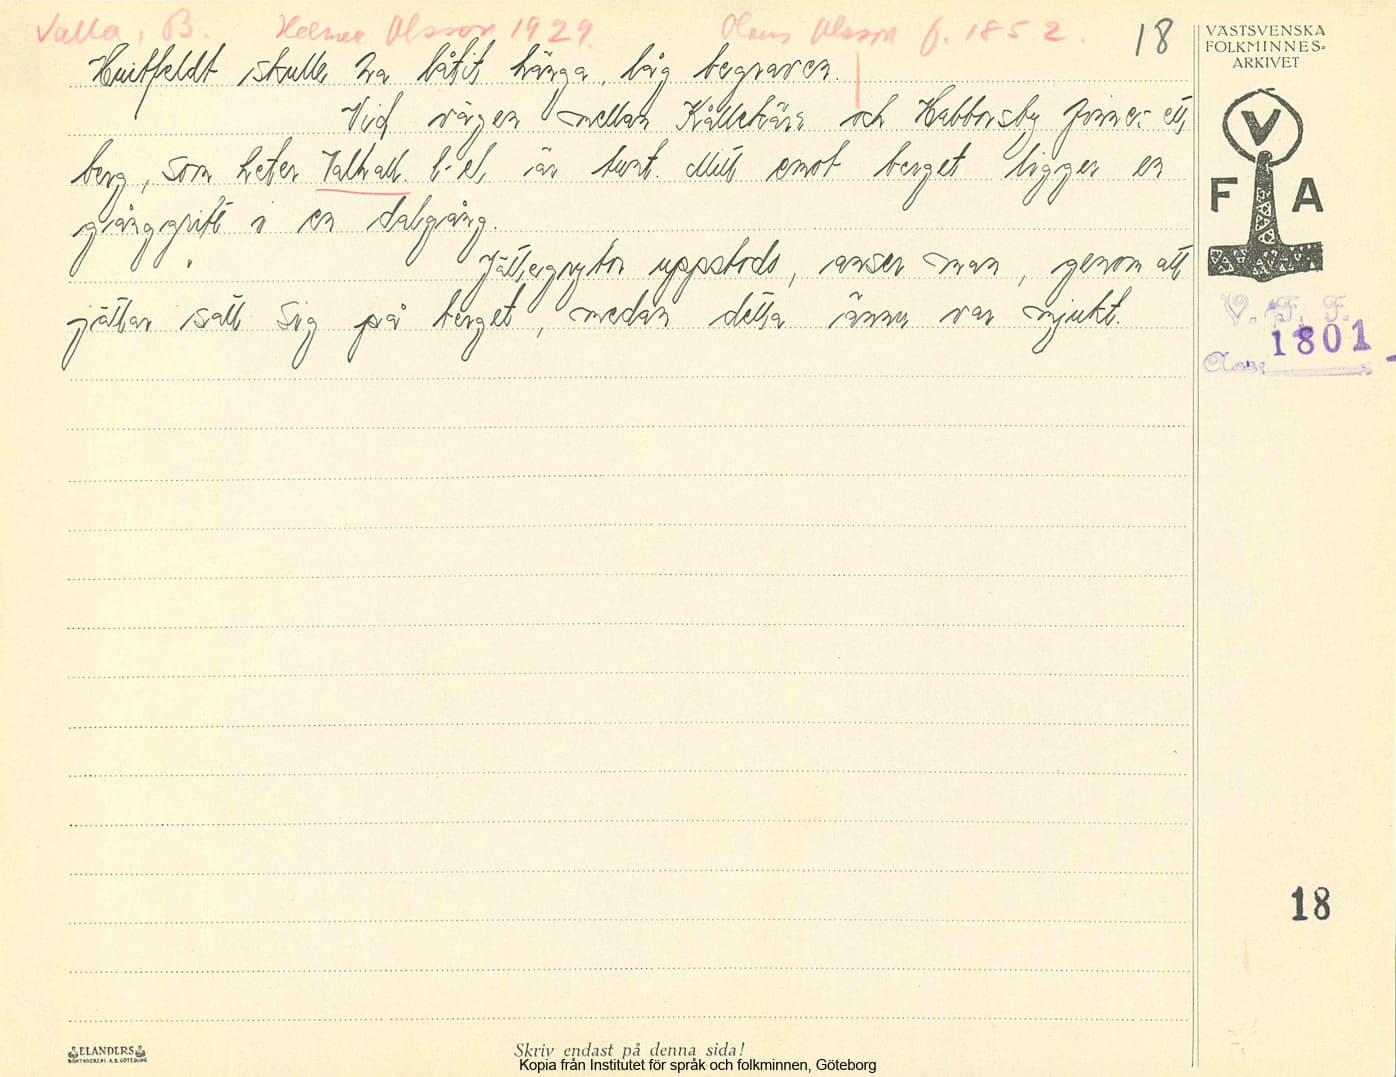 Valla, B. Helmer Olsson 1929. Olaus Olsson f. 1852. 18
Huitfeldt skulle ha låtit hänga, låg begraven.
Vid vägen mellan Kållekärr och Habborsby finnes ett
berg, som heter Valhall. l-et är tunt. Mitt emot berget ligger en
gånggrift i en dalgång.
Jättegrytor uppstods, anser man, genom att
jättar satt sig på berget, medan detta ännu var mjukt.
VÄSTSVENSKA
FOLKMINNES-
ARKIVET
V
F A
V. F. F.
1801
18
ELANDERS
BOKTRYCKERI A.B. GÖTEBORG
Skriv endast på denna sida!
Kopia från Institutet för språk och folkminnen, Göteborg